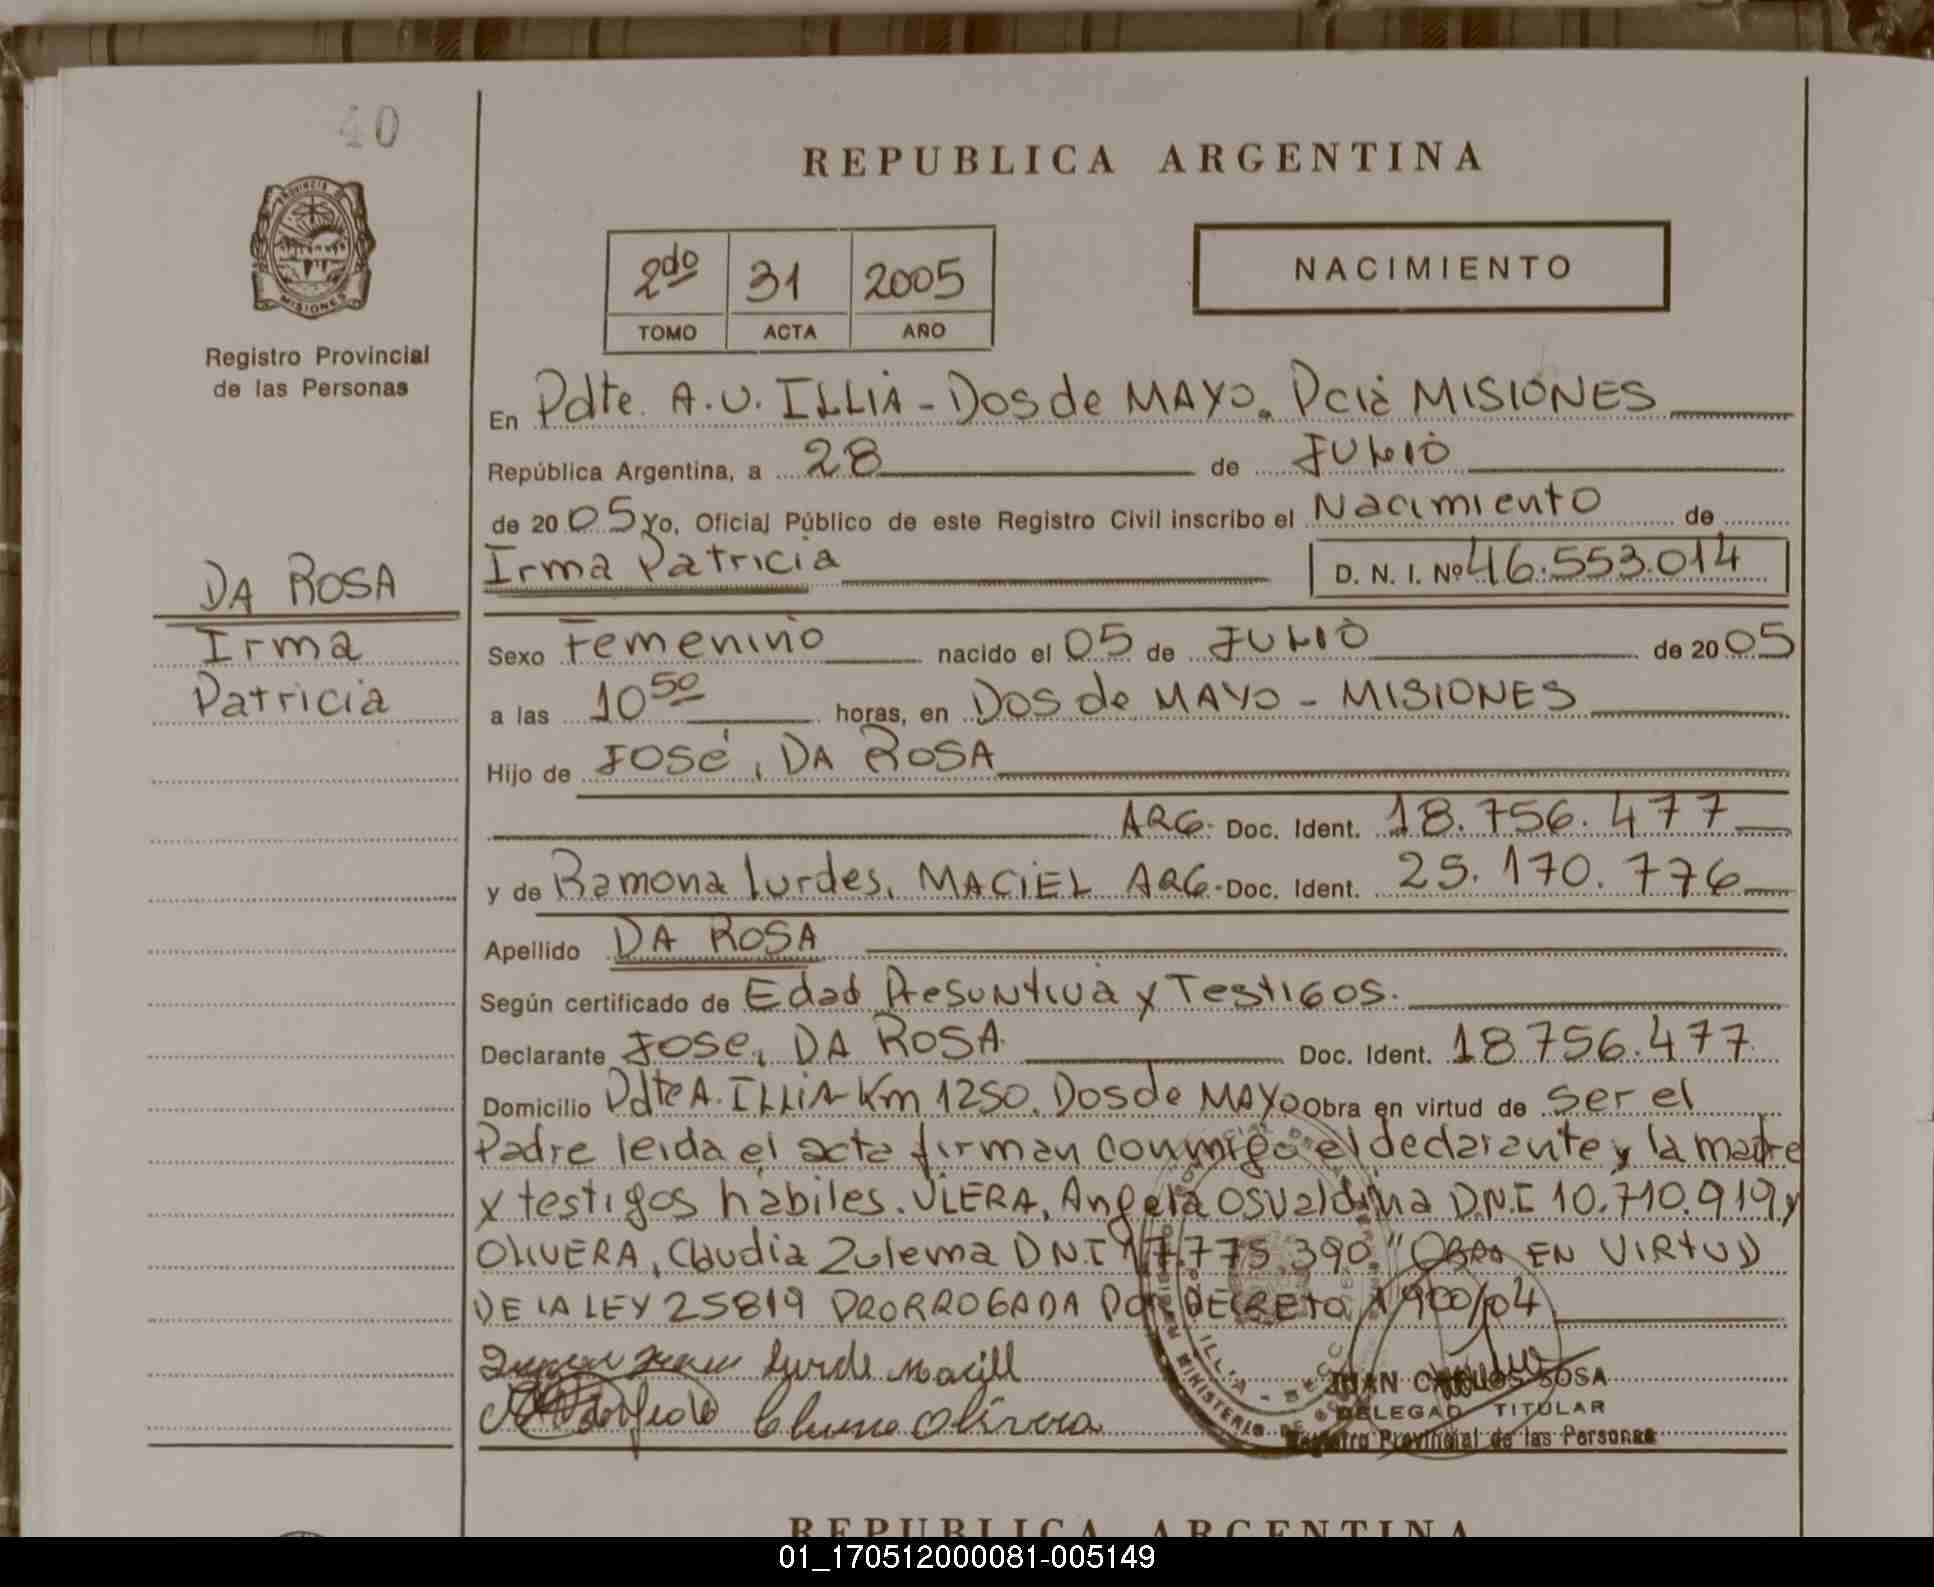 40
REPUBLICA ARGENTINA
PROVINCIA DE
MISIONES
Registro Provincial
de las Personas
2do 31 2005
TOMO ACTA AÑO
NACIMIENTO
En Pdte. A.U. ILLIA - Dos de MAYO. Pcia MISIONES
República Argentina, a 28 de JULIO
de 2005 Yo, Oficial Público de este Registro Civil inscribo el Nacimiento de
Irma Patricia D. N. I. Nº 46.553.014
DA ROSA
Irma
Patricia
Sexo Femenino nacido el 05 de JULIO de 2005
a las 10 50 horas, en Dos de MAYO - MISIONES
Hijo de JOSÉ, DA ROSA
ARG. Doc. Ident. 18.756.477
y de Ramona Lurdes, MACIEL ARG. Doc. Ident. 25.170.776
Apellido DA ROSA
Según certificado de Edad Presuntiva y Testigos.
Declarante JOSE, DA ROSA Doc. Ident. 18756.477
Domicilio Pdte A. ILLIA Km 1250. Dos de MAYO Obra en virtud de ser el
Padre leida el acta firman conmigo el declarante y la madre
y testigos habiles. VIERA, Angela Osvaldina D.N.I 10.710.919 y
OLIVERA, Claudia Zulema D.N.I 17.775.390 "OBRA EN VIRTUD
DE LA LEY 25819 PRORROGADA POR DECRETO 1900/04
Lurde Maciel
Olivera
JUAN CARLOS SOSA
DELEGADO TITULAR
Registro Provincial de las Personas
REPUBLICA ARGENTINA
01_170512000081-005149